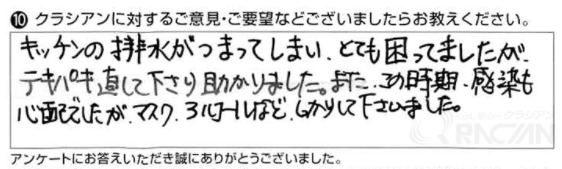 ❿ クラシアンに対するご意見・ご要望などございましたらお教えください。
キッチンの排水がつまってしまい、とても困ってましたが、
テキパキ直して下さり助かりました。また、この時期、感染も
心配でしたが、マスク、アルコールなど、しっかりして下さいました。
クラシアン
QRACIAN
アンケートにお答えいただき誠にありがとうございました。